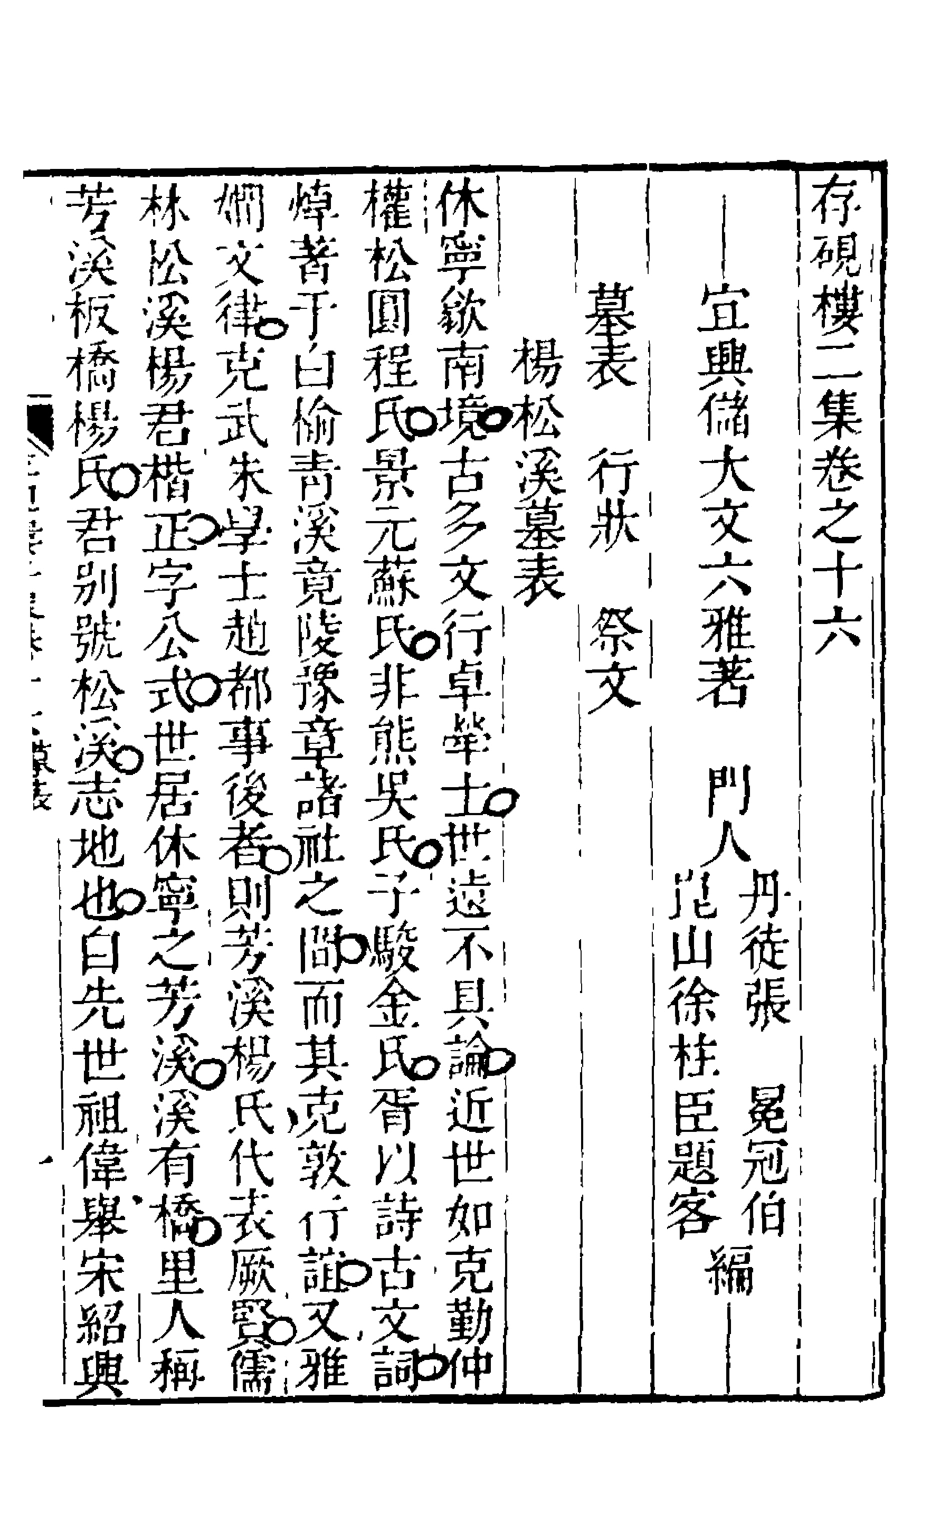 存硯樓二集卷之十六
宜興儲大文六雅著　門人
丹徒張　冕冠伯
崑山徐柱臣題客
編
墓表　行狀　祭文
楊松溪墓表
休寧歙南境古多文行卓犖士世遠不具論近世如克勤仲
權松圓程氏景元蘇氏非熊吳氏子駿金氏胥以詩古文詞
焯著于白榆青溪竟陵豫章諸社之間而其克敦行誼又雅
嫻文律克武朱學士趙都事後者則芳溪楊氏代表厥賢儒
林松溪楊君楷正字公式世居休寧之芳溪溪有橋里人稱
芳溪板橋楊氏君別號松溪志地也自先世祖偉舉宋紹興
墓表
一